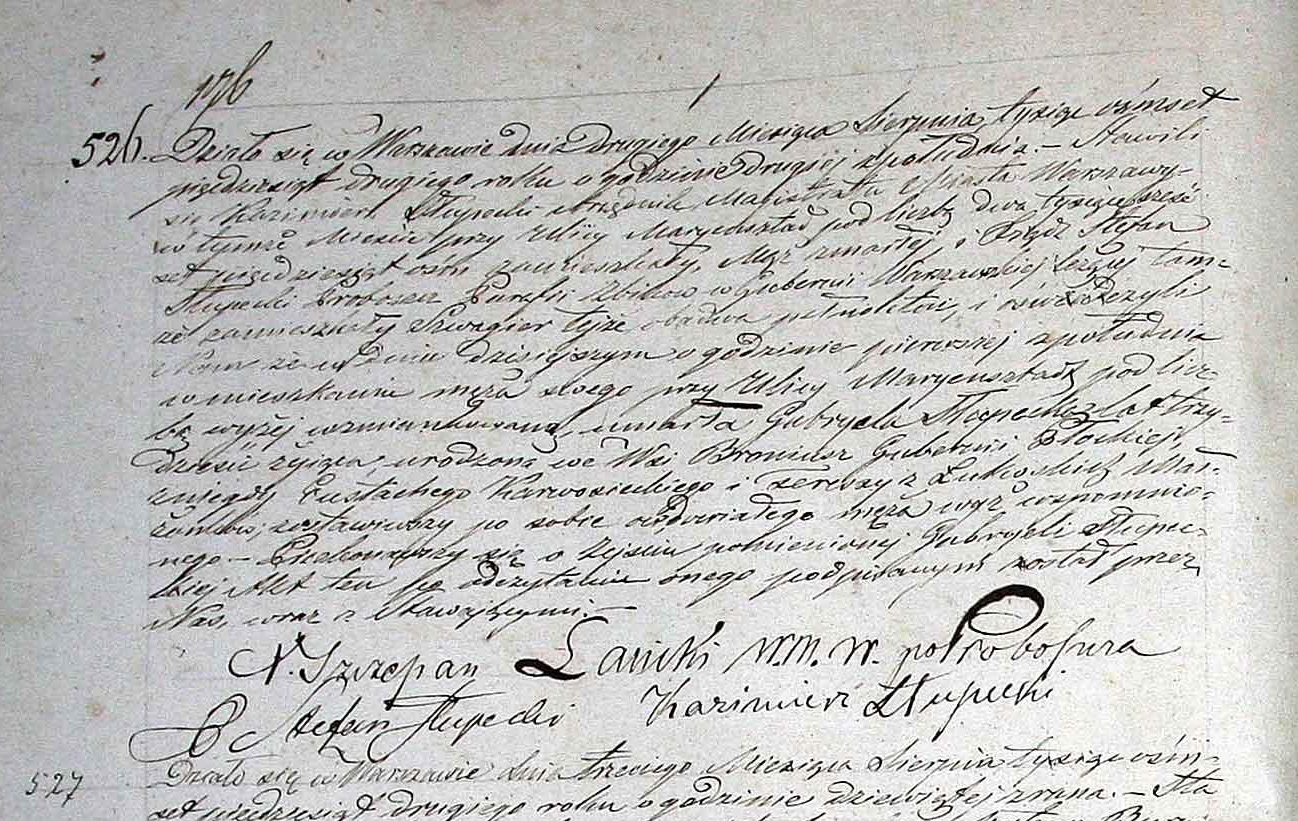 176
526. Działo się w Warszawie dnia Drugiego Miesiąca Sierpnia tysiąc ośmset
pięćdziesiąt drugiego roku o godzinie Drugiej z południa. – Stawili
się Kazimierz Słupecki Urzędnik Magistratu Miasta Warszawy
w tymże Mieście przy Ulicy Maryensztad pod liczbą dwa tysiące sześć
set pięćdziesiąt ośm zamieszkały, Mąż zmarłej, i Xiądz Stefan
Słupecki Proboszcz Parafii Zbików w Gubernii Warszawskiej leżącej tam-
że zamieszkały Szwagier tejże obadwa pełnoletni, i oświadczyli
Nam że w dniu dzisiejszym o godzinie pierwszej z południa
w mieszkaniu męża swego przy Ulicy Maryensztadt pod licz-
bą wyżej wzmiankowaną, umarła Gabryela Słupecka lat trzy-
dzieści żyjąca; urodzona we Wsi Broniusz Gubernii Płockiej,
z niegdy Eustachego Karwosieckiego i Tereszy z Łukoskich Mał-
żonków; zostawiwszy po sobie owdowiałego męża wyż wspomnio-
nego – Przekonawszy się o zejściu pomienionej Gabryeli Słupec-
kiej Akt ten po odczytaniu onego podpisanym został przez
Nas, wraz z Stawającymi. –
X. Szczepan Łanicki W. M. W. po Proboszcza
X Stefan Słupecki Kazimierz Słupecki
527 Działo się w Warszawie dnia trzeciego Miesiąca Sierpnia tysiąc ośm-
set pięćdziesiąt drugiego roku o godzinie dziewiątej z rana. – Sta